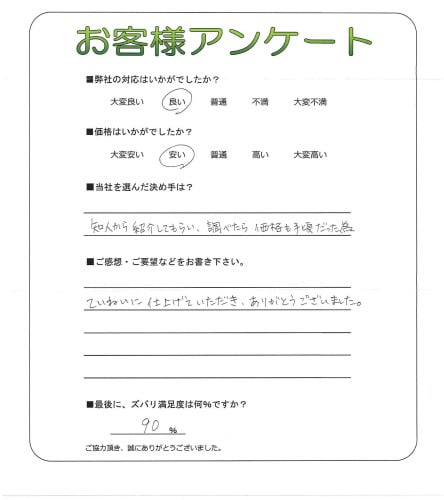 お客様アンケート
■弊社の対応はいかがでしたか？
大変良い 良い 普通 不満 大変不満
■価格はいかがでしたか？
大変安い 安い 普通 高い 大変高い
■当社を選んだ決め手は？
知人から紹介してもらい、調べたら価格も手頃だった為
■ご感想・ご要望などをお書き下さい。
ていねいに仕上げていただき、ありがとうございました。
■最後に、ズバリ満足度は何％ですか？
90 ％
ご協力頂き、誠にありがとうございました。